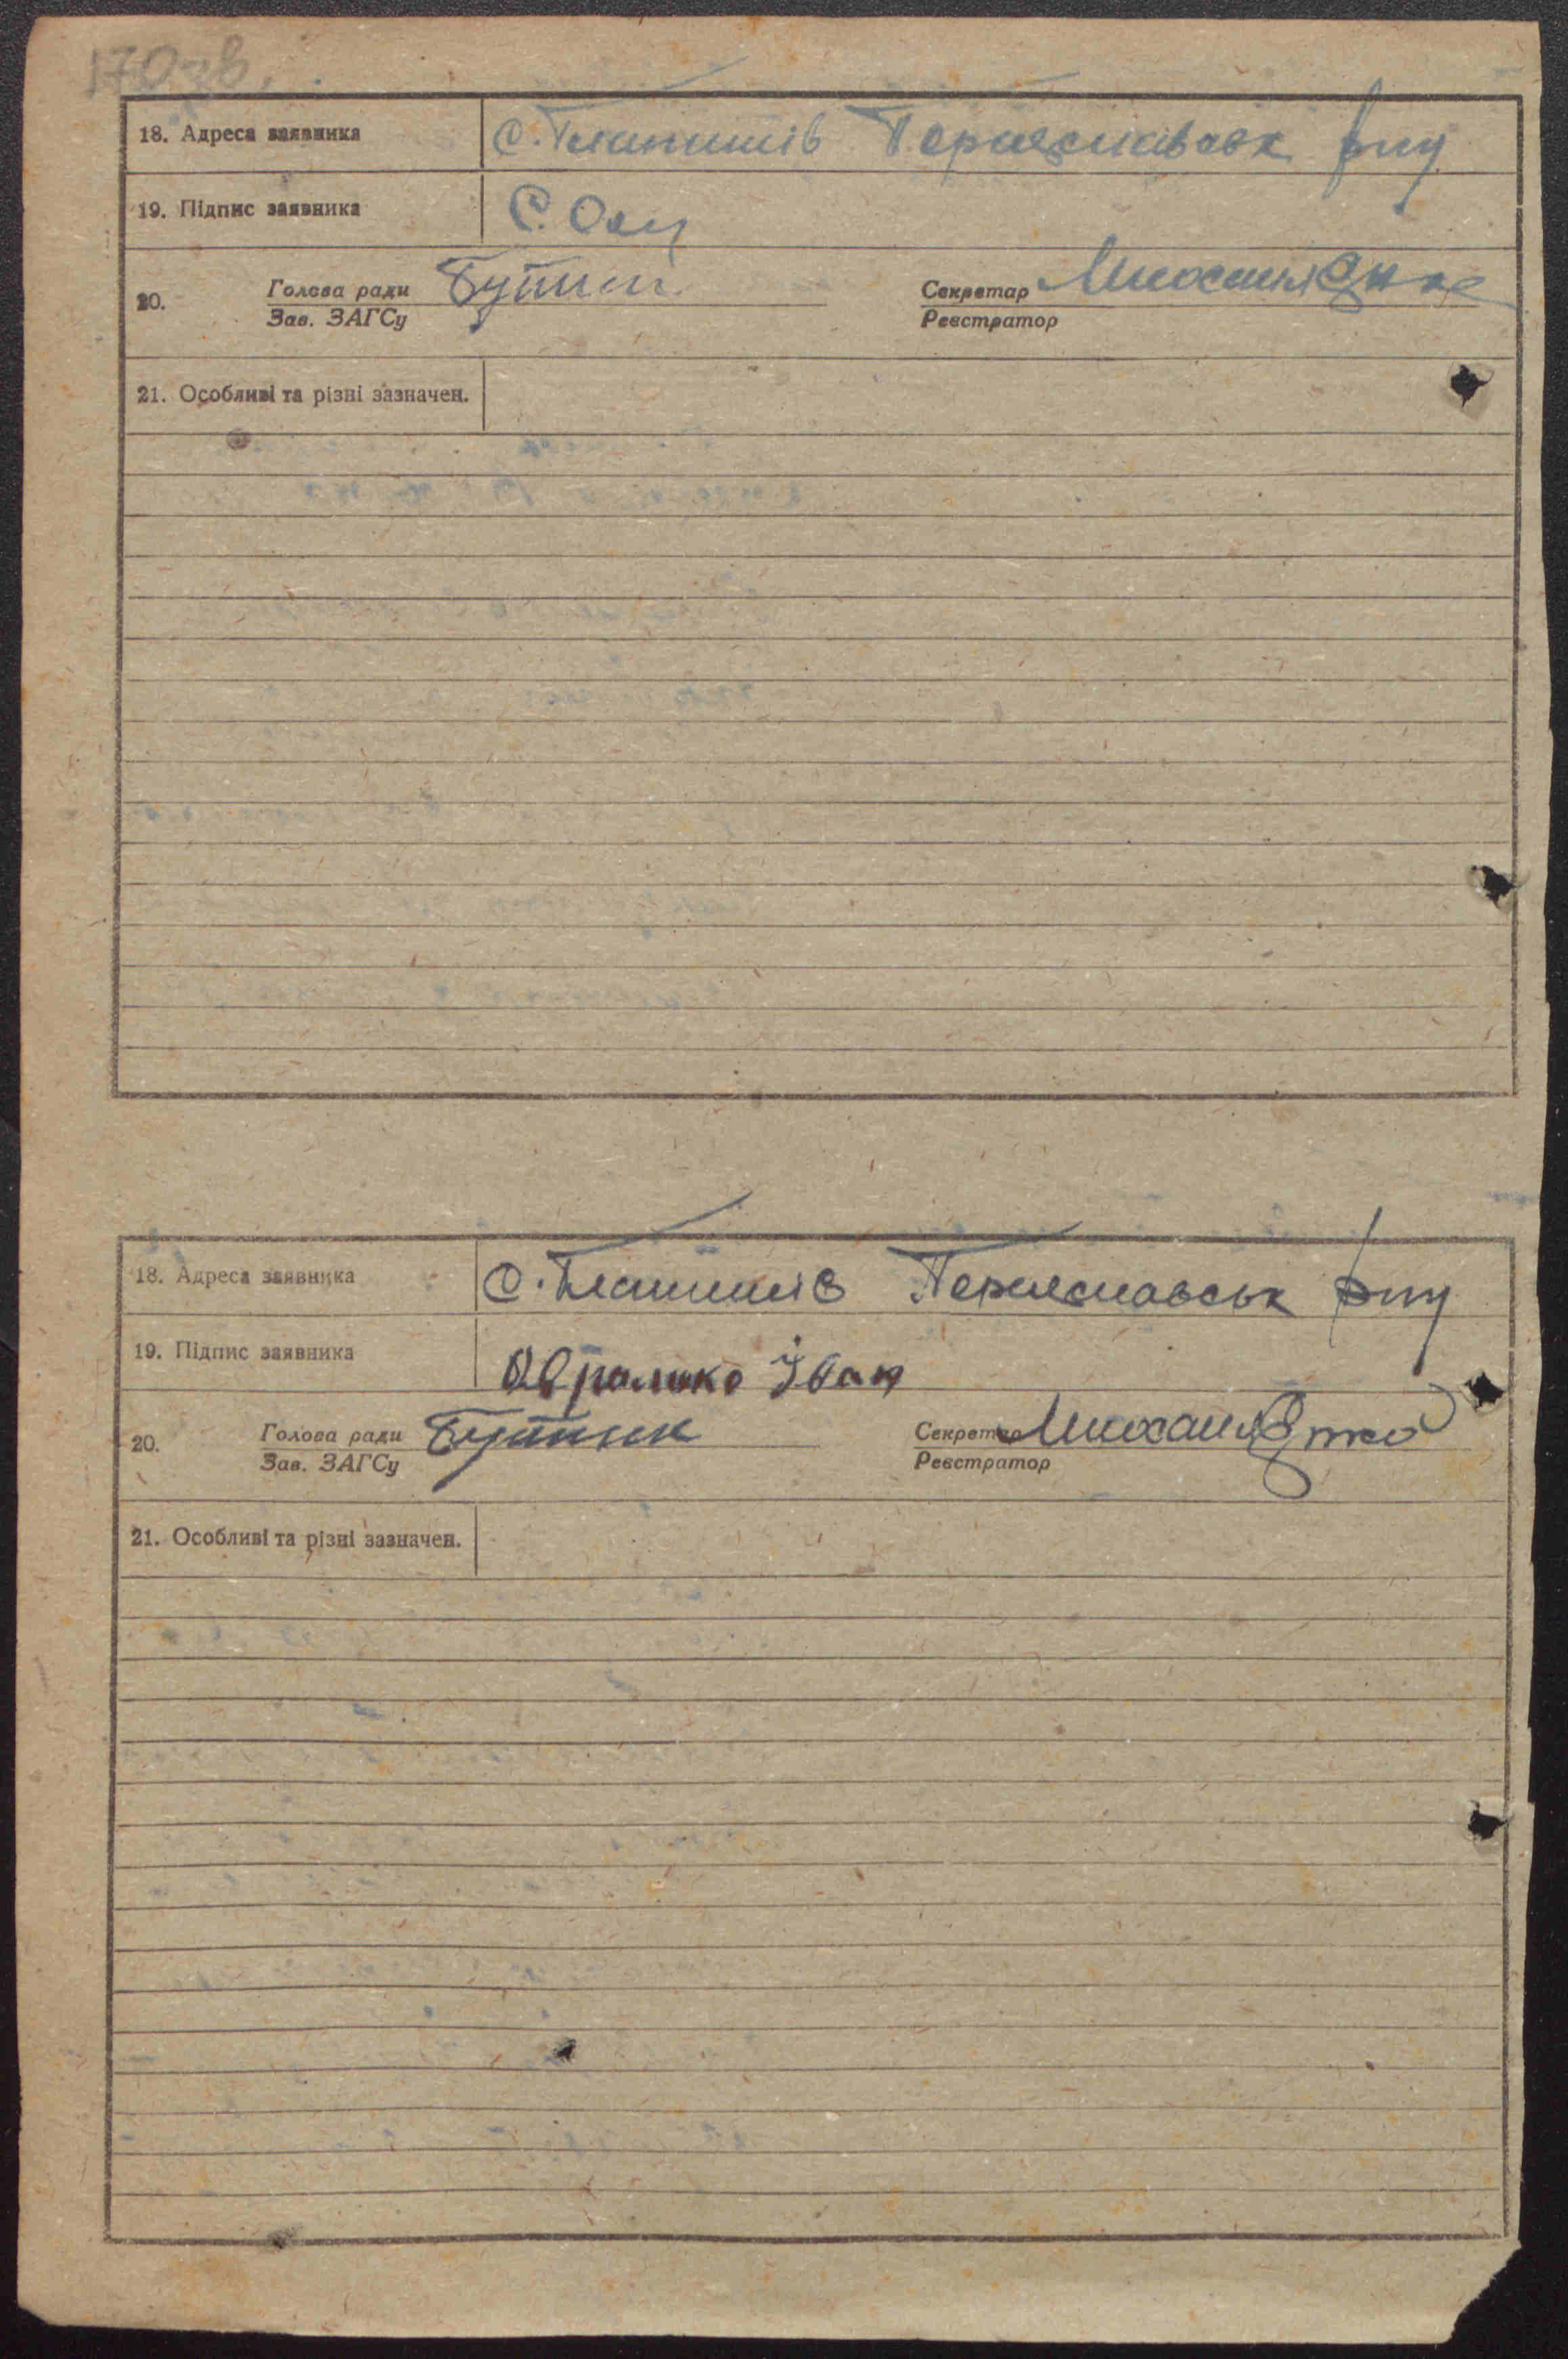 170зв.
18. Адреса заявника с. Ташитів Переяславськ р-ну
19. Підпис заявника
20. Голова ради Зав. ЗАГСу Бутник Секретар Реєстратор
21. Особливі та різні зазначен.
18. Адреса заявника с. Переяславськ р-ну
19. Підпис заявника Авраменко Іван
20. Голова ради Зав. ЗАГСу Бутник Секретар Реєстратор
21. Особливі та різні зазначен.